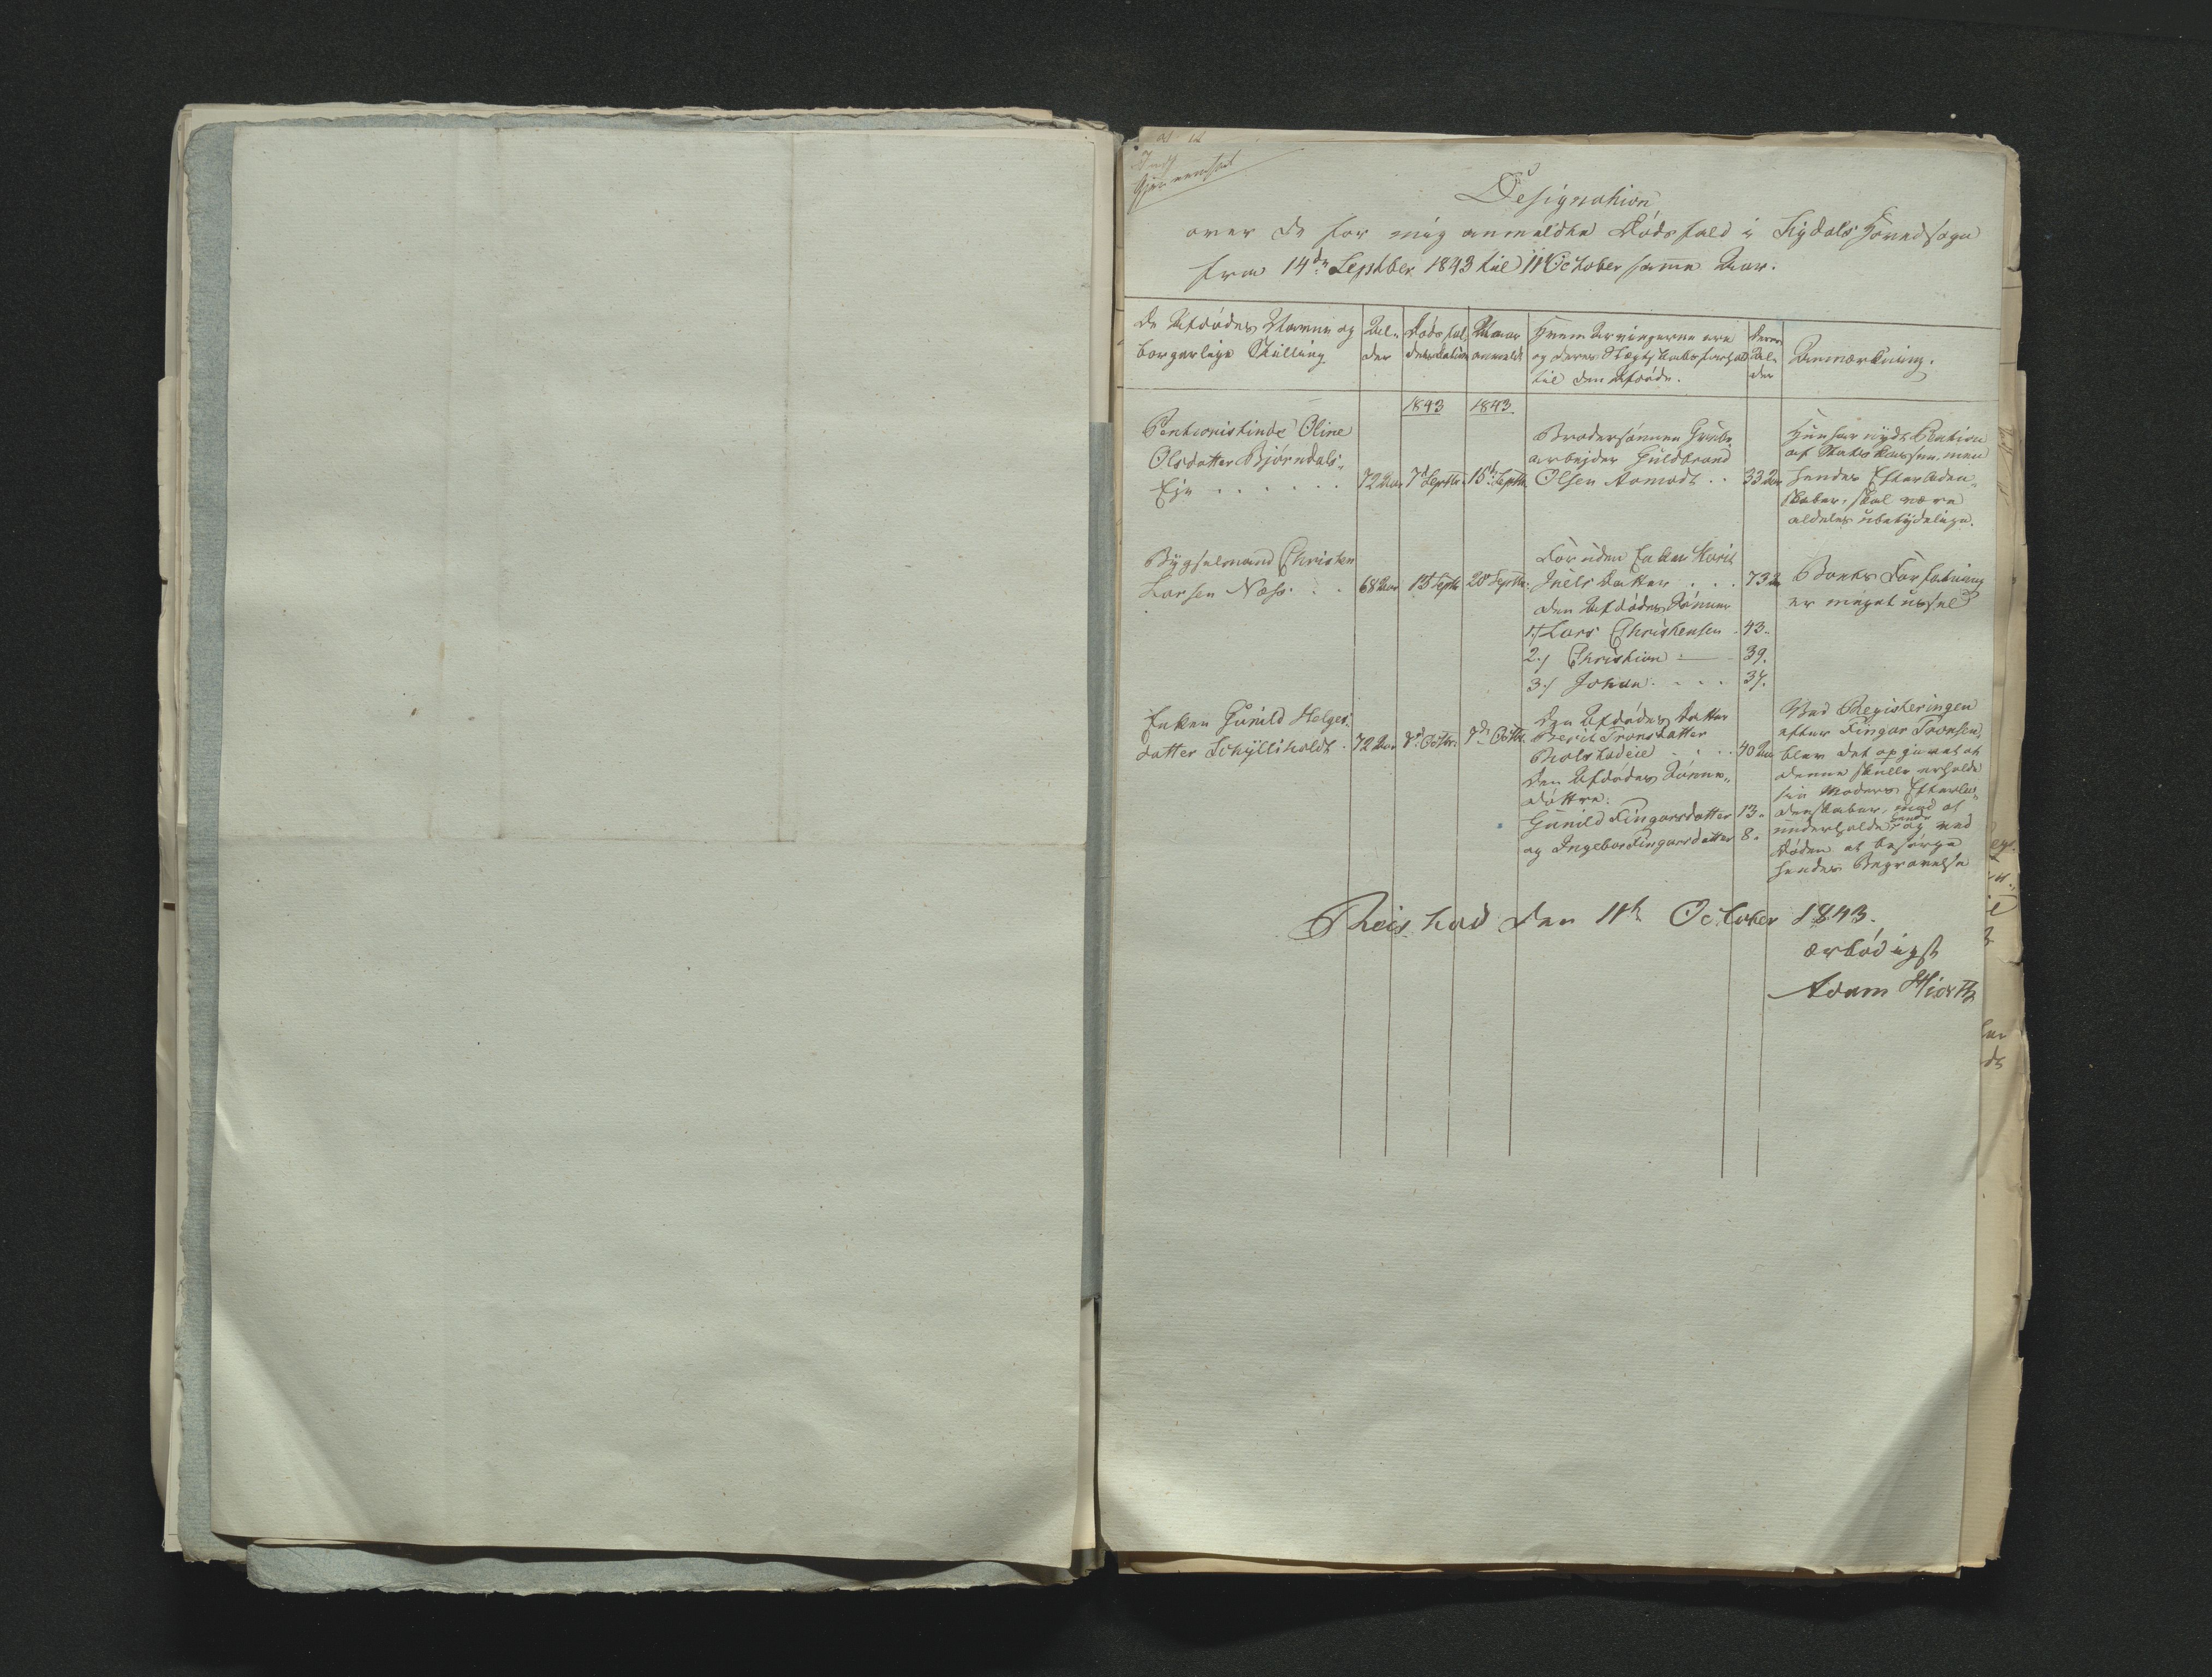 Designation
over de for mig anmeldte Dødsfald i Sigdals Hovedsogn
fra 14de Septber 1843 til 11 October samme Aar.
De Afdødes Navne og
borgerlige Stilling
Al-
der
Dødsfal-
dets Datum
Naar
anmeldt
Hvem Arvingerne ere
og deres Slægtskabsforhold
til den Afdøde.
Deres
Al-
der
Anmærkning.
1843
1843.
Pentionistinde Oline
Olsdatter Bjørndals-
Eje . . . . . .
72 Aar
7d Septbr.
15d Septbr.
Brodersønnen Grube-
arbejder Guldbrand
Olsen Aamodt . .
33 Aar
Hun har nydt Pention
af Statskassen, men
hendes Efterladen-
skaber, skal være
aldeles ubetydelige.
Bygselmand Christen
Larsen Næss . .
68 Aar
15 Septbr
20d Septbr.
Foruden Enken Marit
Juels Datter . . .
73 Aar
den Afdødes Sønner
1./ Lars Christensen
43.
2./ Christian
39.
3./ Johan . . . .
37.
Boets Forfatning
er meget ussel
Enken Gunild Helges-
datter Schylliholdt .
72 Aar
3d Octbr.
7de Octbr.
Den Afdødes Datter
Berit Tronsdatter
Rolstadeie . . . .
40 Aar
Den Afdødes Sønne-
døttre:
Gunild Fingarsdatter
13.
og Ingebor Fingarsdatter
8.
Ved Registeringen
efter Fingar Tronsen,
blev det opgivet at
denne skulle erholde
sin Moders Efterla-
denskaber, mod at
underholde hende og ved
Døden at besørge
hendes Begravelse
Reistad den 11te October 1843.
ærbødigst
Adam Hiorth